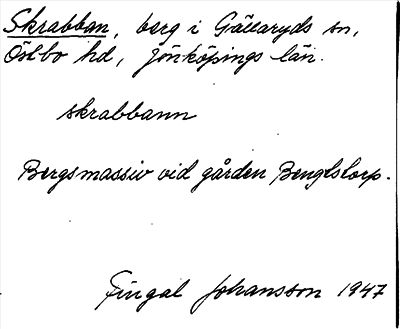 Skrabban, berg i Gällaryds sn,
Östbo hd, Jönköpings län.
skrabbann
Bergsmassiv vid gården Bengtstorp.
Fingal Johansson 1947